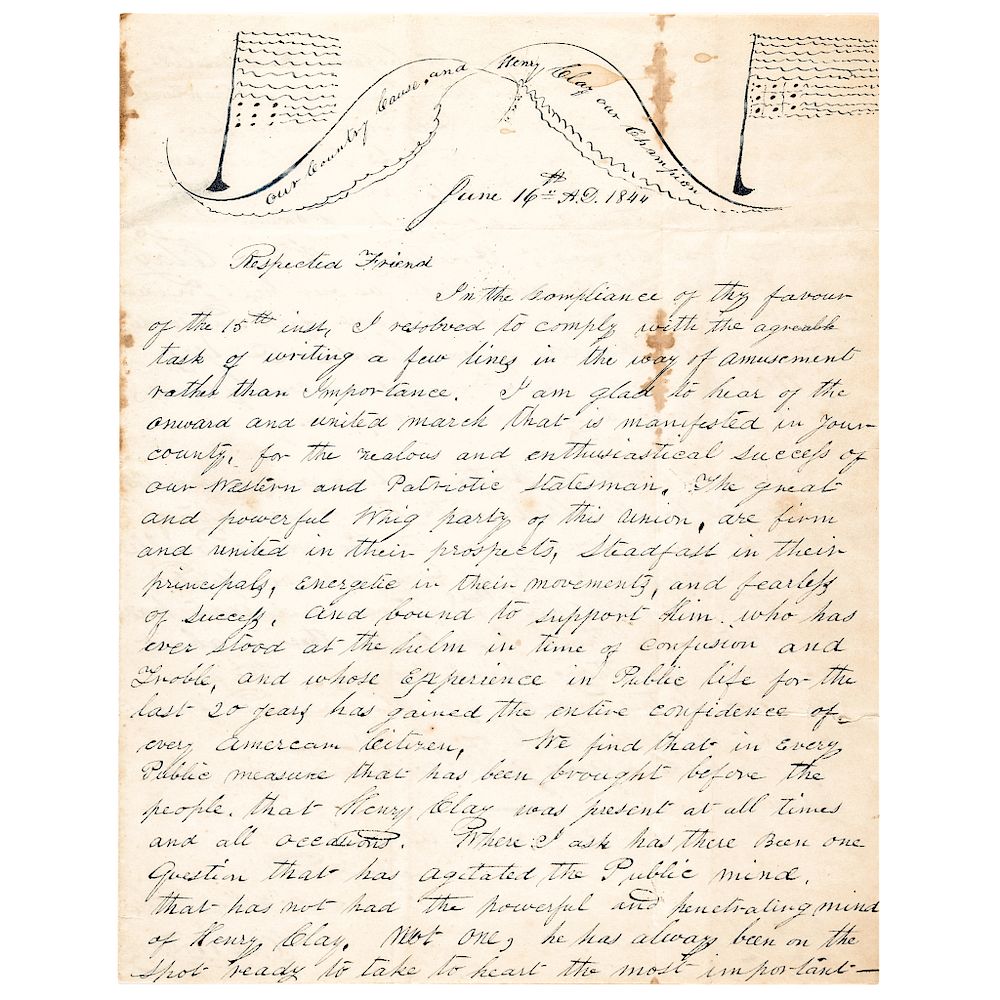 Our Country Cause, and Henry Clay our Champion
June 16th A.D. 1844
Respected Friend
In the Compliance of thy favour
of the 15th inst, I resolved to comply with the agreable
task of writing a few lines in the way of amusement
rather than Importance. I am glad to hear of the
onward and united march that is manifested in your
county, for the zealous and enthusiastical success of
our Western and Patriotic Statesman. The great
and powerful Whig party of this union, are firm
and united in their prospects, Steadfast in their
principals, Energetic in their movements, and fearless
of success, and bound to support Him who has
ever stood at the helm in time of confusion and
Troble, and whose Experience in Public life for the
last 20 years has gained the entire confidence of
every Amerecan Citizen, We find that in Every
Public measure that has been brought before the
people, that Henry Clay was present at all times
and all occasions. Where I ask has there Been one
Question that has agitated the Public mind,
that has not had the powerful and penetrating mind
of Henry Clay. Not one, he has always been on the
spot ready to take to heart the most important—